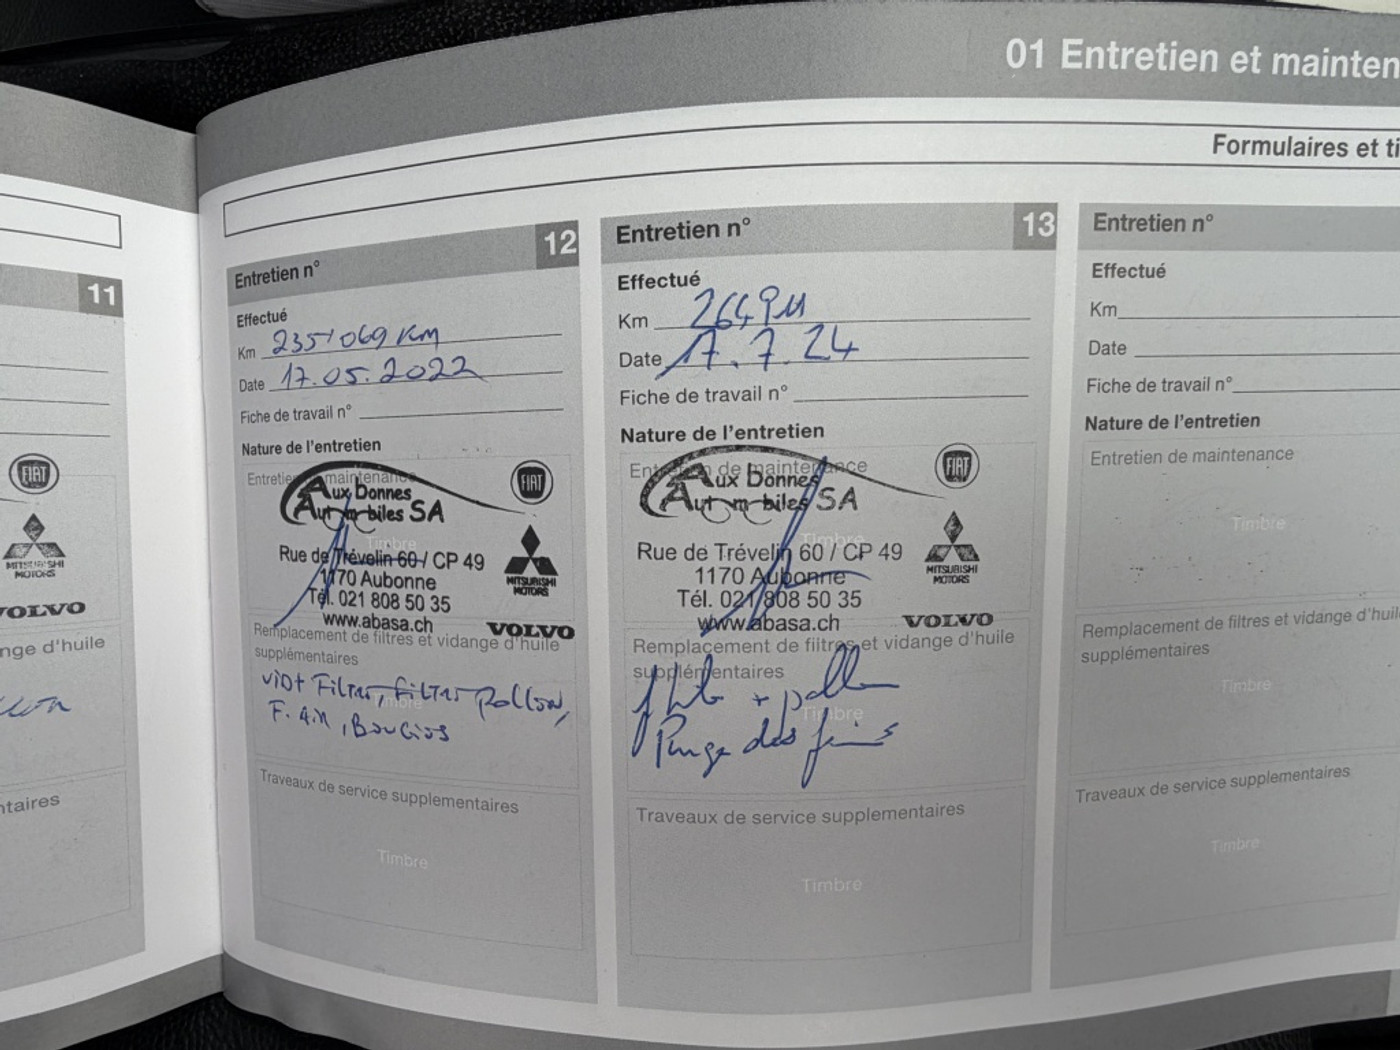 01 Entretien et mainten
Formulaires et ti
11
FIAT
MITSUBISHI
MOTORS
VOLVO
nge d'huile
ntaires
Entretien n° 12
Effectué
Km 235'069 KM
Date 17.05.2022
Fiche de travail n°
Nature de l'entretien
Entretien de maintenance
Aux Bonnes
Automobiles SA
FIAT
Timbre
Rue de Trévelin 60 / CP 49
1170 Aubonne
Tél. 021 808 50 35
www.abasa.ch
MITSUBISHI
MOTORS
VOLVO
Remplacement de filtres et vidange d'huile
supplémentaires
vidt Filter, Filter Pollen,
Timbre
F. Air, Bougies
Traveaux de service supplementaires
Timbre
Entretien n° 13
Effectué
Km
Date 17.7.24
Fiche de travail n°
Nature de l'entretien
Entretien de maintenance
Aux Bonnes
Automobiles SA
FIAT
Timbre
Rue de Trévelin 60 / CP 49
1170 Aubonne
Tél. 021 808 50 35
www.abasa.ch
MITSUBISHI
MOTORS
VOLVO
Remplacement de filtres et vidange d'huile
supplémentaires
+ pollen
Timbre
Purge des freins
Traveaux de service supplementaires
Timbre
Entretien n°
Effectué
Km
Date
Fiche de travail n°
Nature de l'entretien
Entretien de maintenance
Timbre
Remplacement de filtres et vidange d'huil
supplémentaires
Timbre
Traveaux de service supplementaires
Timbre